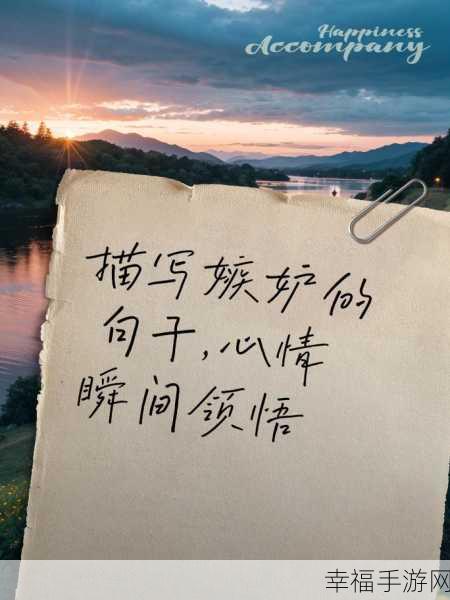 Happiness
Accompany
描写嫉妒的
句子,心情
瞬间领悟
幸福手游网